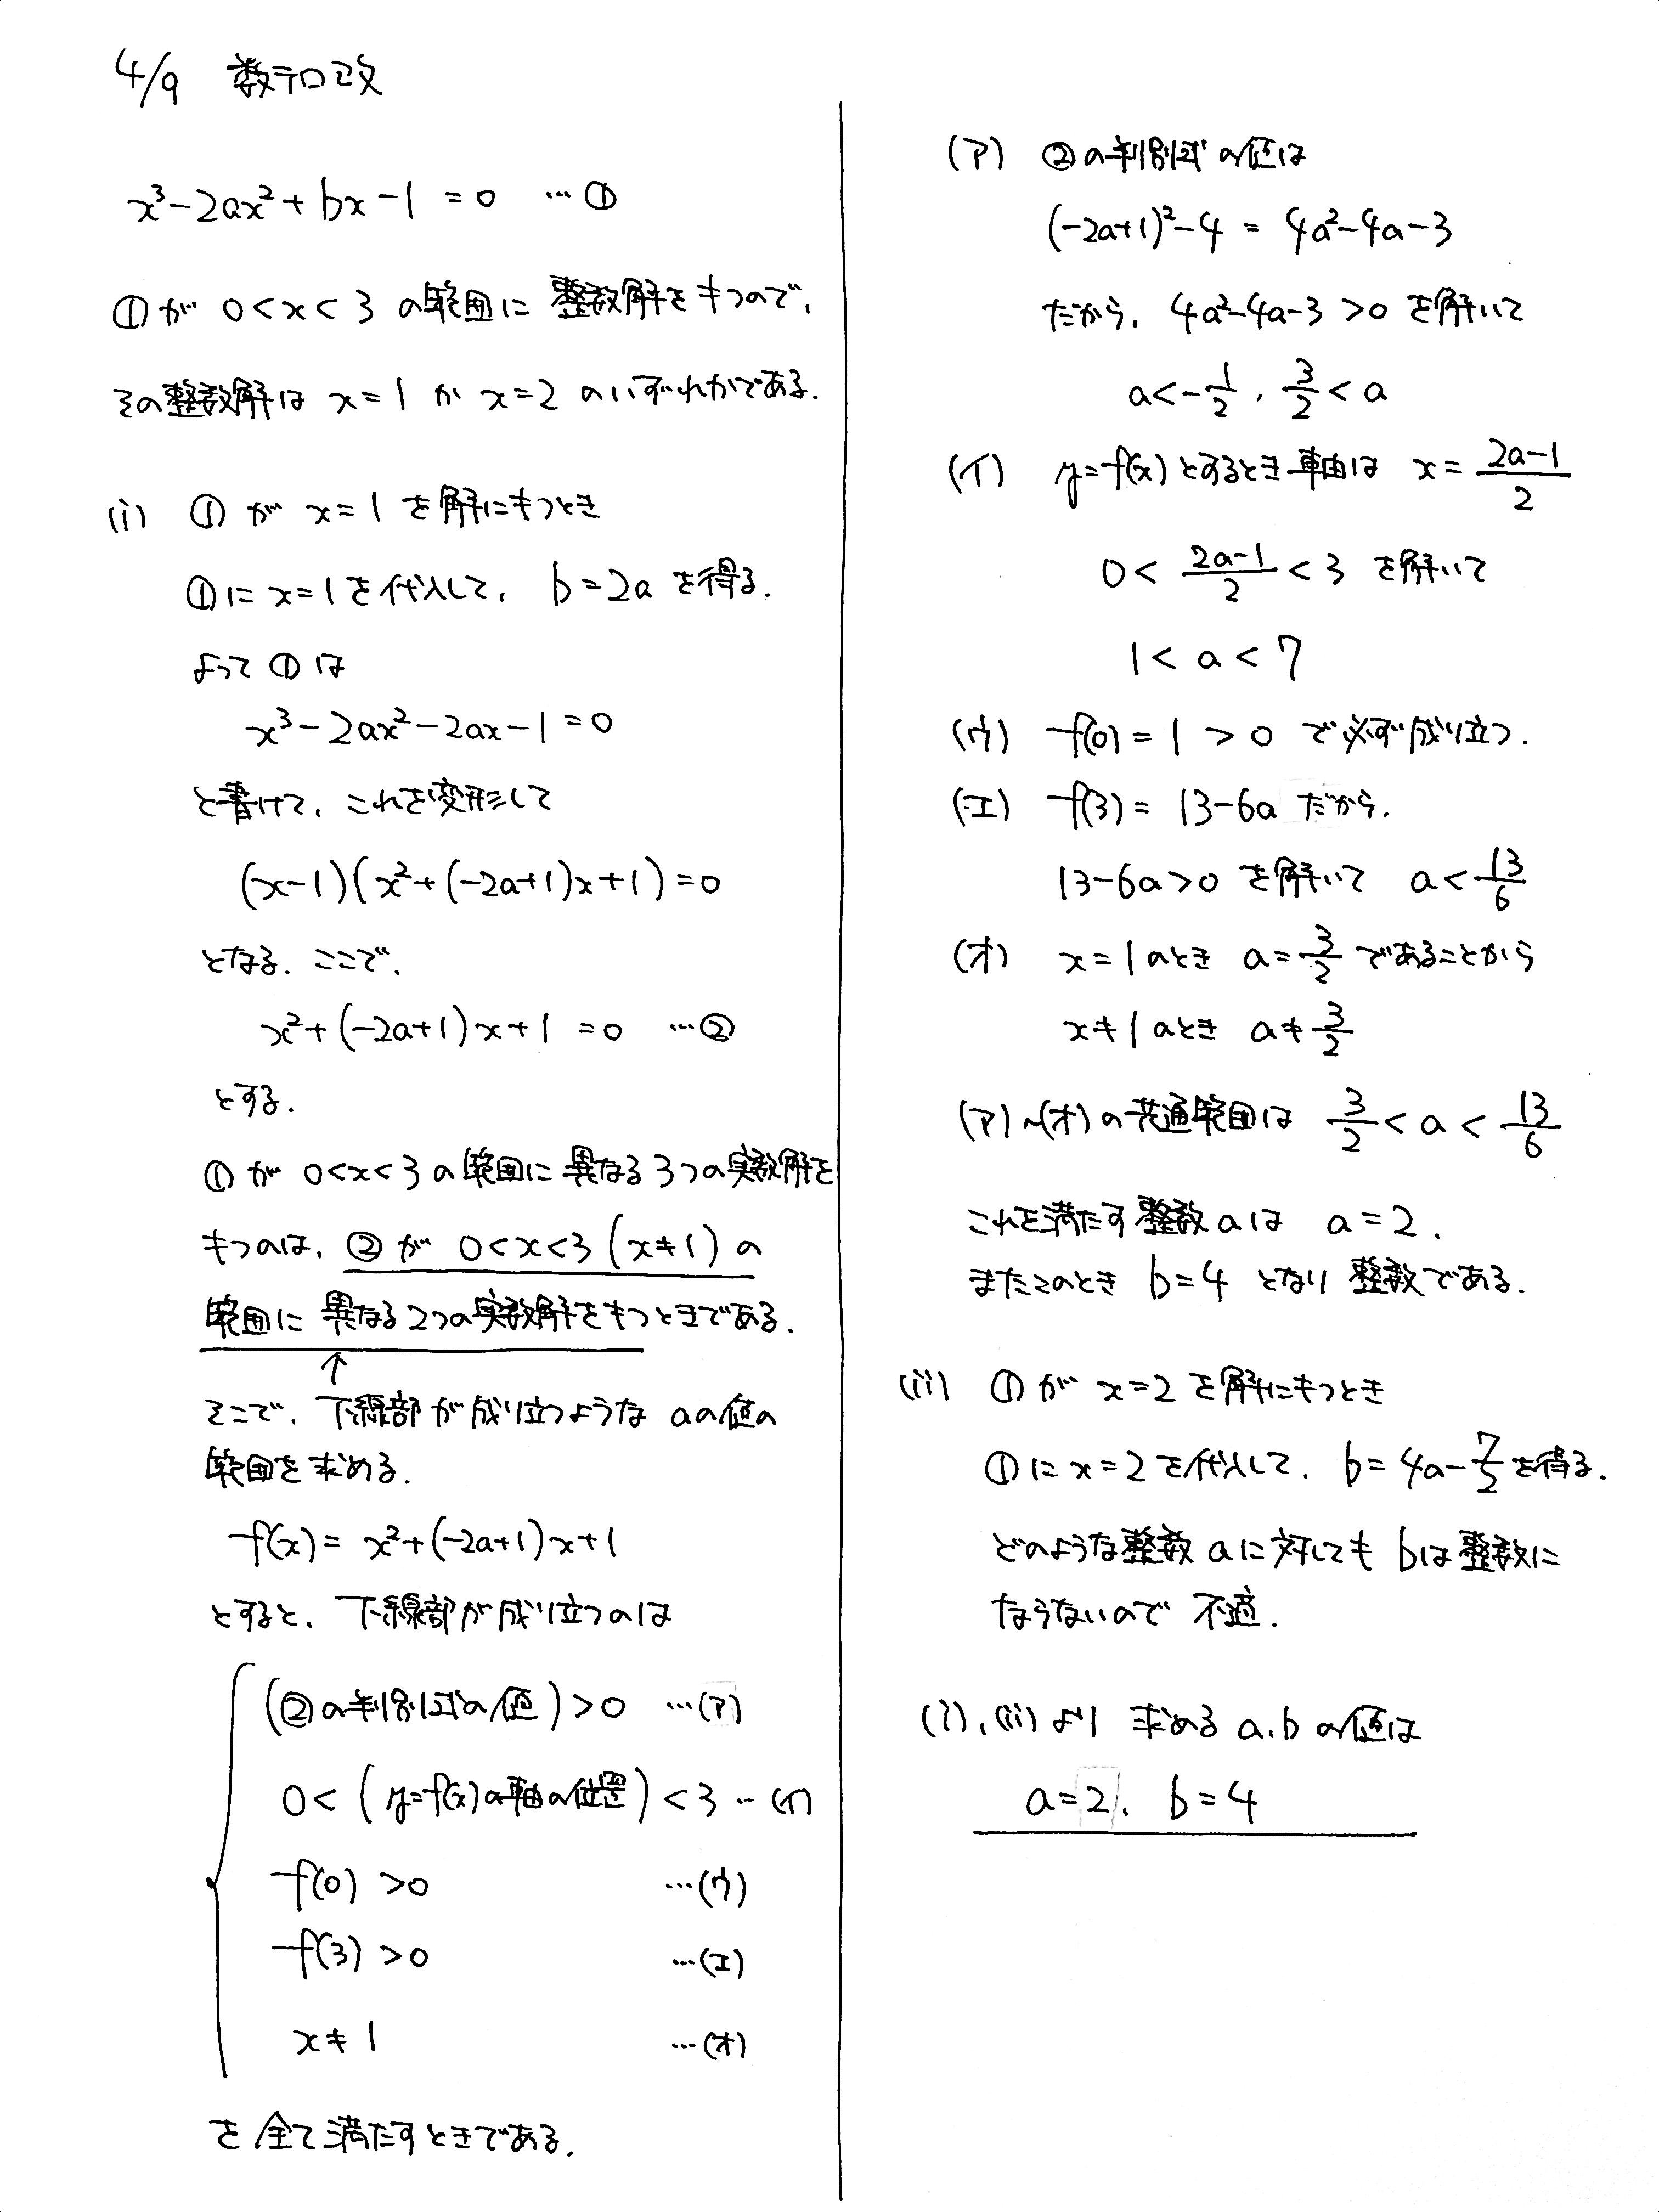 4/9 数テロ改
x³-2ax²+bx-1 = 0 …①
①が 0<x<3 の範囲に 整数解をもつので,
その整数解は x=1 か x=2 のいずれかである.
(i) ① が x=1 を解にもつとき
①に x=1を代入して, b=2a を得る.
よって ① は
x³-2ax²-2ax-1=0
と書けて, これを変形して
(x-1)(x²+(-2a+1)x+1)=0
となる. ここで,
x²+(-2a+1)x+1 =0 …②
とする.
① が 0<x<3 の 範囲に 異なる3つの実数解を
もつのは, ② が 0<x<3 (x≠1) の
範囲に 異なる2つの実数解をもつときである.
↑
そこで, 下線部が成り立つような aの値の
範囲を求める.
f(x)= x²+(-2a+1)x+1
とすると, 下線部が成り立つのは
(②の判別式の値)>0 …(ア)
0< (y=f(x)の軸の位置) <3 …(イ)
f(0) >0 …(ウ)
f(3) >0 …(エ)
x≠1 …(オ)
を 全て満たすときである.
(ア) ②の判別式の値は
(-2a+1)²-4 = 4a²-4a-3
だから, 4a²-4a-3>0 を解いて
a<-1/2, 3/2<a
(イ) y=f(x)とするとき軸は x= (2a-1)/2
0< (2a-1)/2 <3 を解いて
1< a <7
(ウ) f(0)= 1 >0 で必ず成り立つ.
(エ) f(3)= 13-6a だから,
13-6a>0 を解いて a<13/6
(オ) x=1のとき a=3/2 であることから
x≠1のとき a≠3/2
(ア)~(オ)の共通範囲は 3/2< a < 13/6
これを満たす整数aは a=2.
またこのとき b=4 となり 整数である.
(ii) ① が x=2 を解にもつとき
①に x=2を代入して, b= 4a-7/2を得る.
どのような整数 aに対しても bは整数に
ならないので 不適.
(i), (ii) より 求める a, b の値は
a=2, b=4